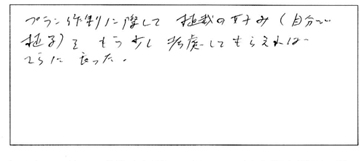 プラン作制に際して植栽の好み（自分で
植える）をもう少し考慮してもらえれば
さらに良かった．